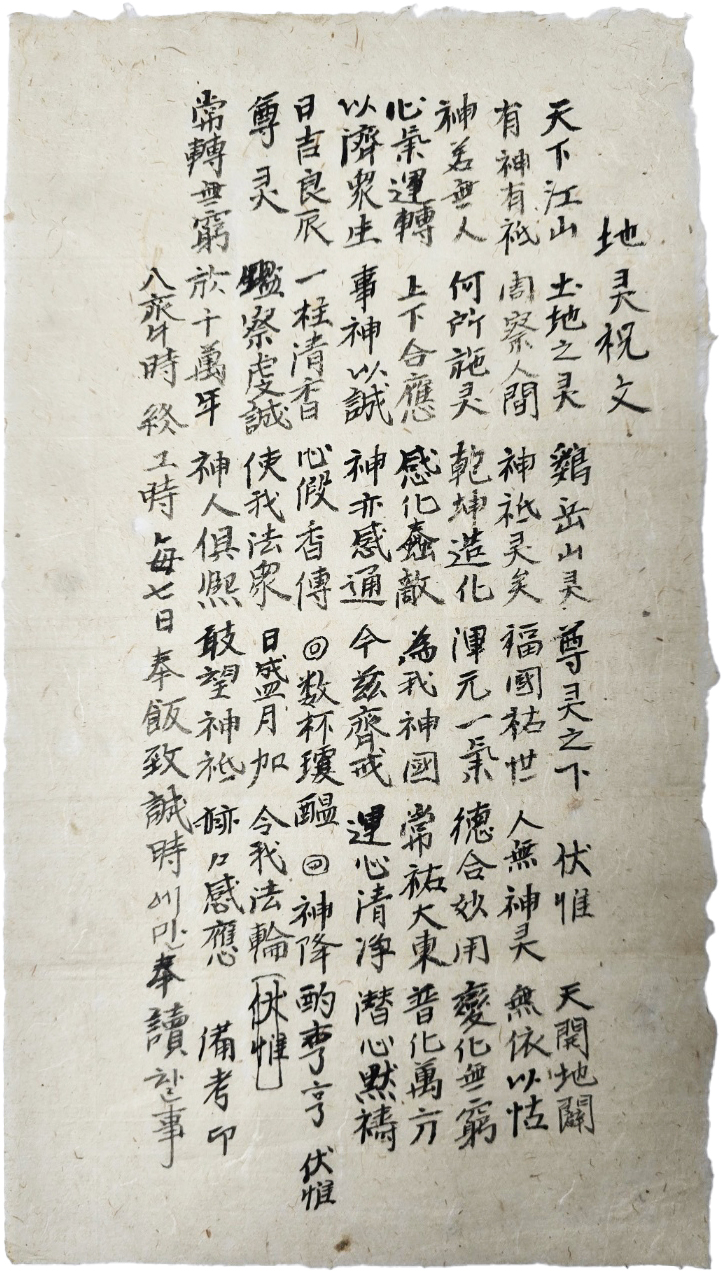 地灵祝文
天下江山 土地之灵 鷄岳山灵 尊灵之下 伏惟 天開地闢
有神有祗 周察人間 神祗灵矣 福國祐世 人無神灵 無依以怙
神若無人 何所施灵 乾坤造化 渾元一氣 德合妙用 變化無窮
心氣運轉 上下合應 感化蠢敵 為我神國 常祐大東 普化萬方
以濟衆生 事神以誠 神亦感通 今玆齊戒 運心清净 潜心默禱
日吉良辰 一柱清香 心假香傳 ◎数杯瓊醞 ◎神降 酌亨亨 伏惟
尊灵 鑑察虔誠 使我法衆 日盛月加 令我法輪 (伏惟)
常轉無窮 於千萬年 神人俱熙 敢望神祗 感應 備考印
八齊時 終工時 每七日奉飯致誠時에만 奉讀할事